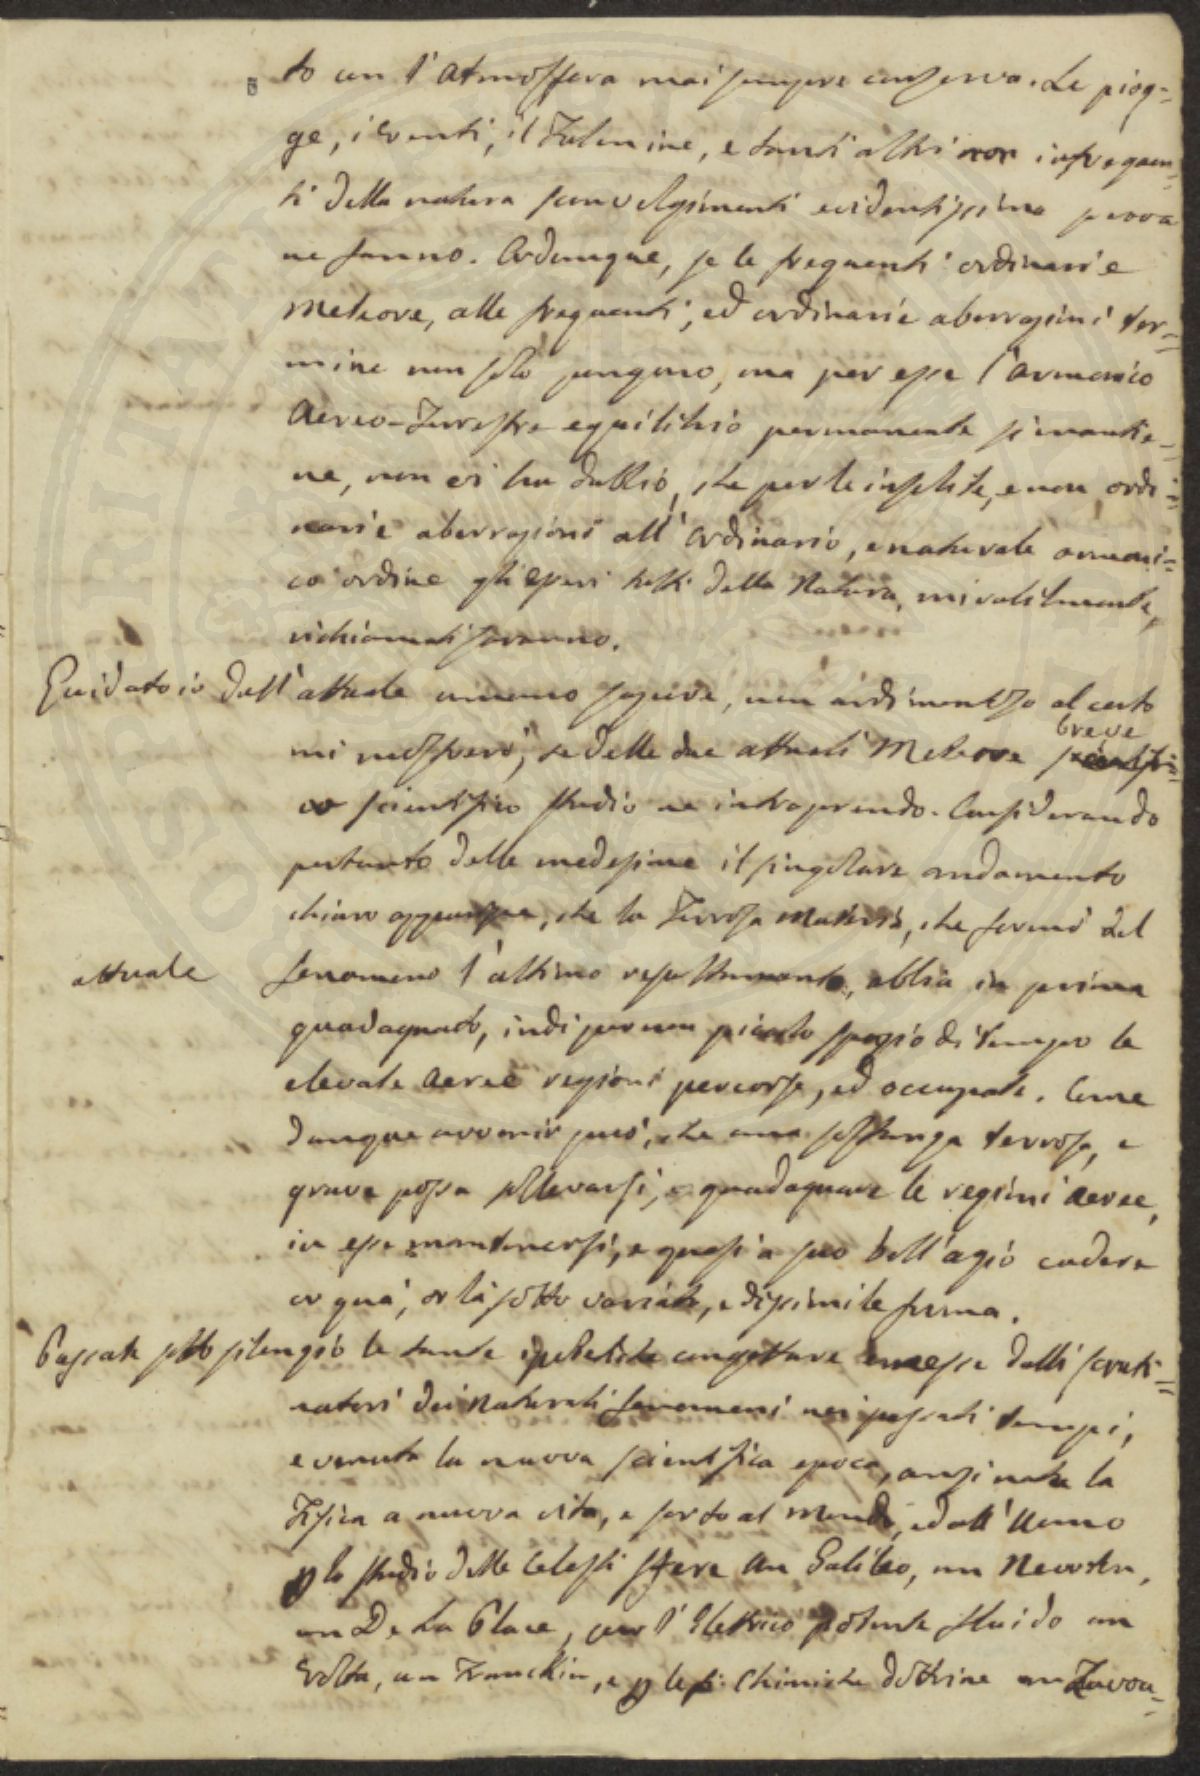 to con l'Atmosfera mai sempre conserva. Le piog=
ge, i venti, il Fulmine, e tanti altri non infrequen=
ti della natura sconvolgimenti evidentissima prova
ne fanno. Ordunque, se le frequenti ordinarie
Meteore, alle frequenti, ed ordinarie aberrazioni ter=
mine non solo pongono, ma per esse l'armonico
Aereo-Terrestre equilibrio permanente si mantie=
ne, non vi ha dubbio, che per le insolite, e non ordi=
narie aberrazioni all'ordinario, e naturale armoni=
co ordine gli esseri tutti della Natura, mirabilmente,
richiamati saranno.
Guidato io dall'attuale umano sapere, non ardimentoso al certo
mi mostrerò, se delle due attuali Meteore breve
scientifico studio ne intraprendo. Considerando
pertanto delle medesime il singolare andamento
chiaro apparisce, che la Terrosa materia, che formò del
attuale fenomeno l'ultimo resultamento, abbia in prima
guadagnato, indi per non piccolo spazio di tempo le
elevate Aeree regioni percorse, ed occupate. Come
dunque avvenir può, che una sostanza terrosa, e
grave possa sollevarsi, e guadagnare le regioni aeree,
in esse mantenersi, e quasi a suo bell'agio cadere
or quà, or là sotto variata, e dissimile forma.
Passate sotto silenzio le tante ipotetiche congetture emesse dalli scruti=
natori dei Naturali fenomeni nei passati tempi,
e venuta la nuova scientifica epoca, anzi nata la
Fisica a nuova vita, e sorto al Mondo, ed all'Uomo
p lo studio delle Celesti sfere un Galileo, un Newton,
un De La Place, per l'Elettrico potente fluido un
Volta, un Francklin, e p le Chimiche dottrine un Lavoa=